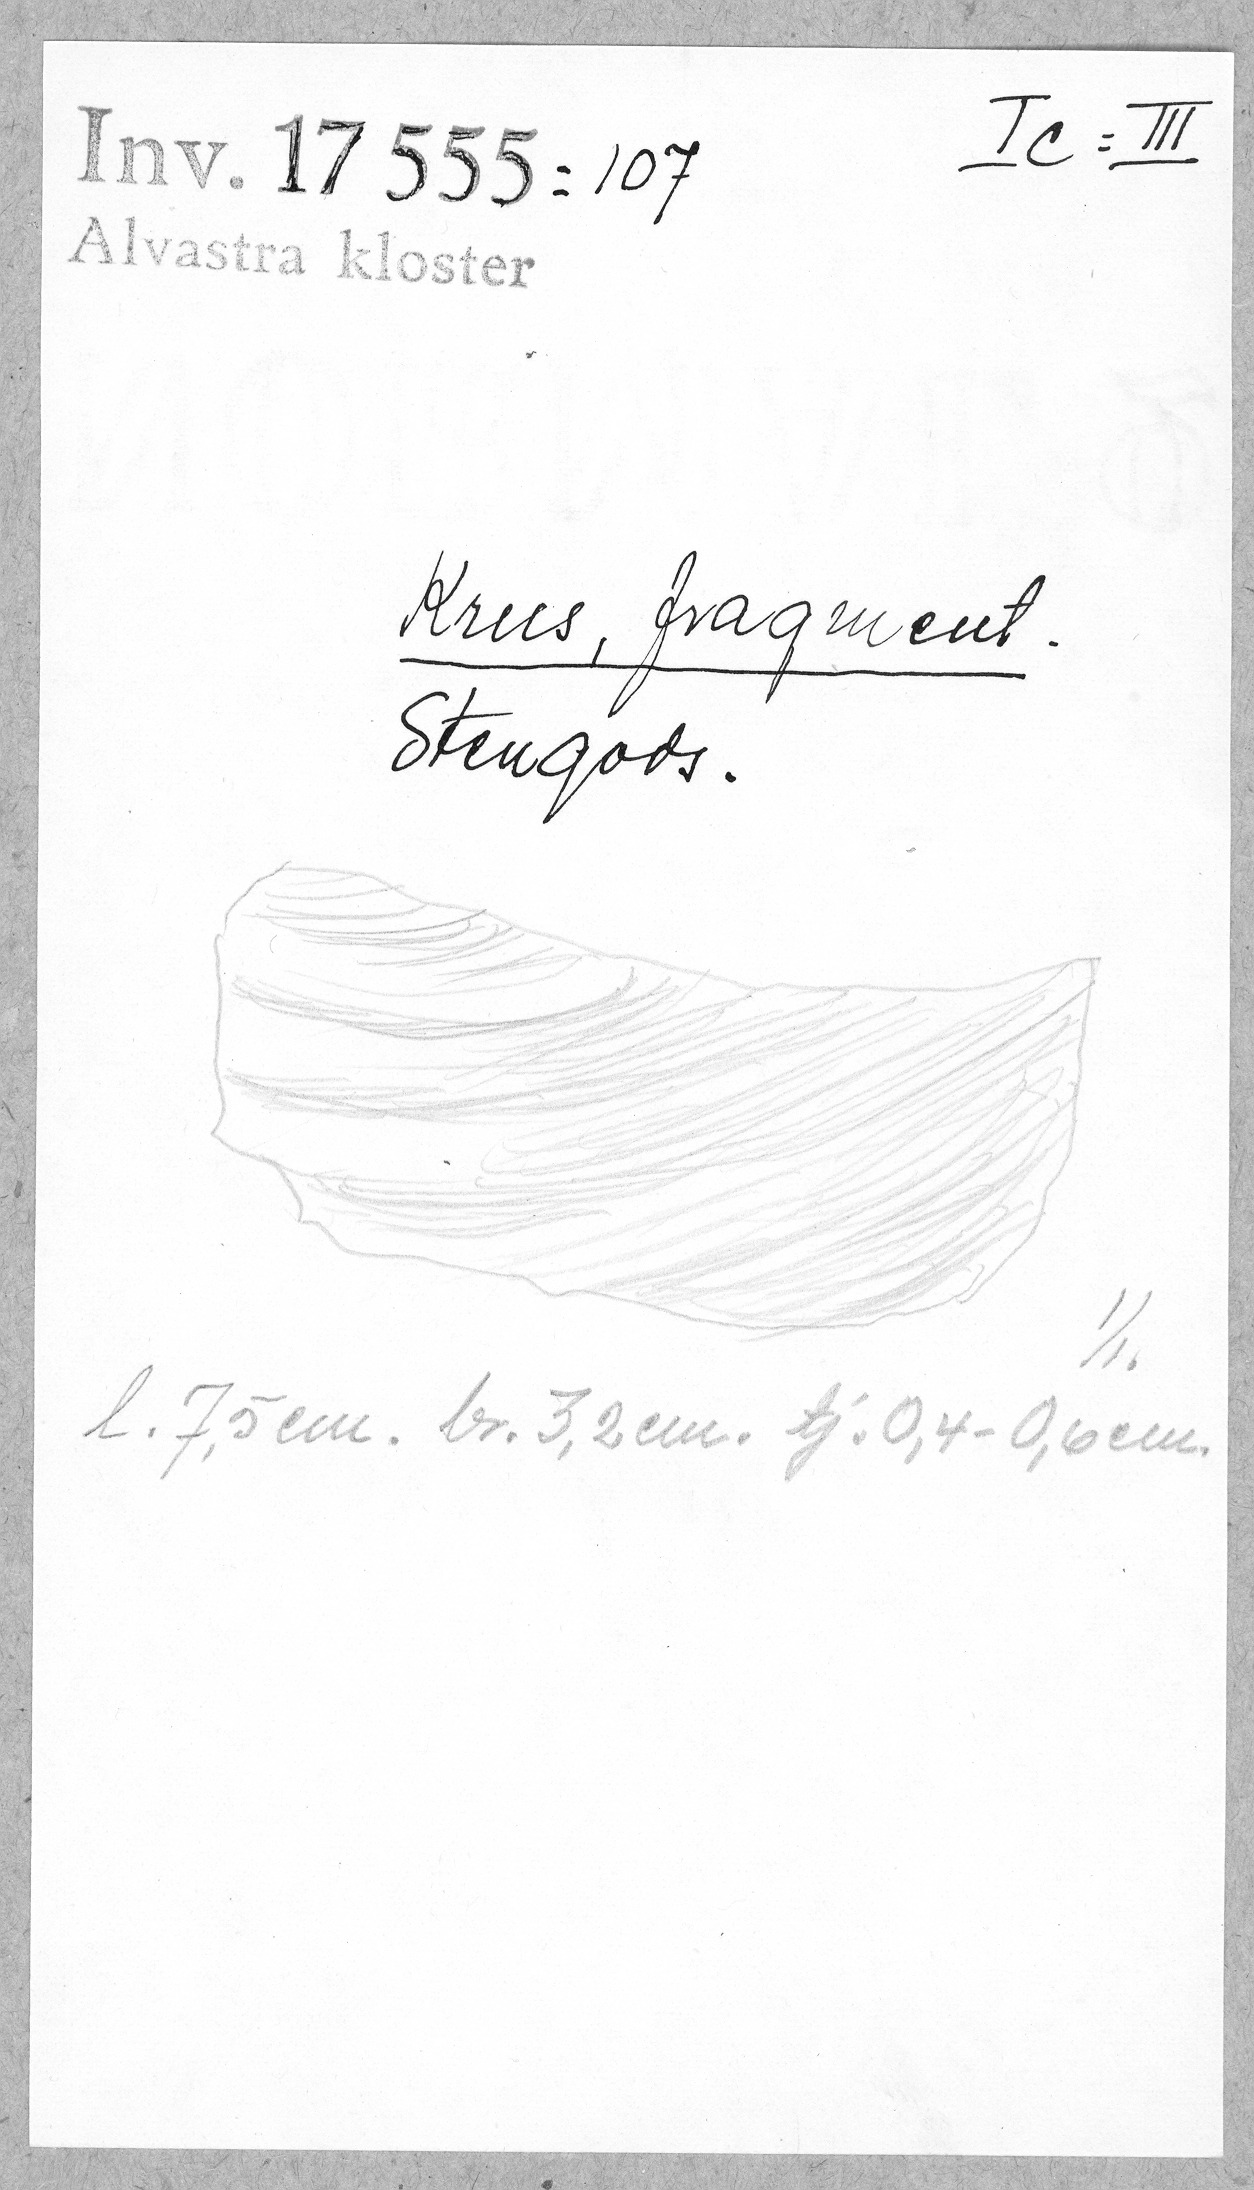 Inv. 17555:107
Ic:III
Alvastra kloster
Krus, fragment.
Stengods.
1/1.
l. 7,5 cm. br. 3,2 cm. tj. 0,4-0,6 cm.